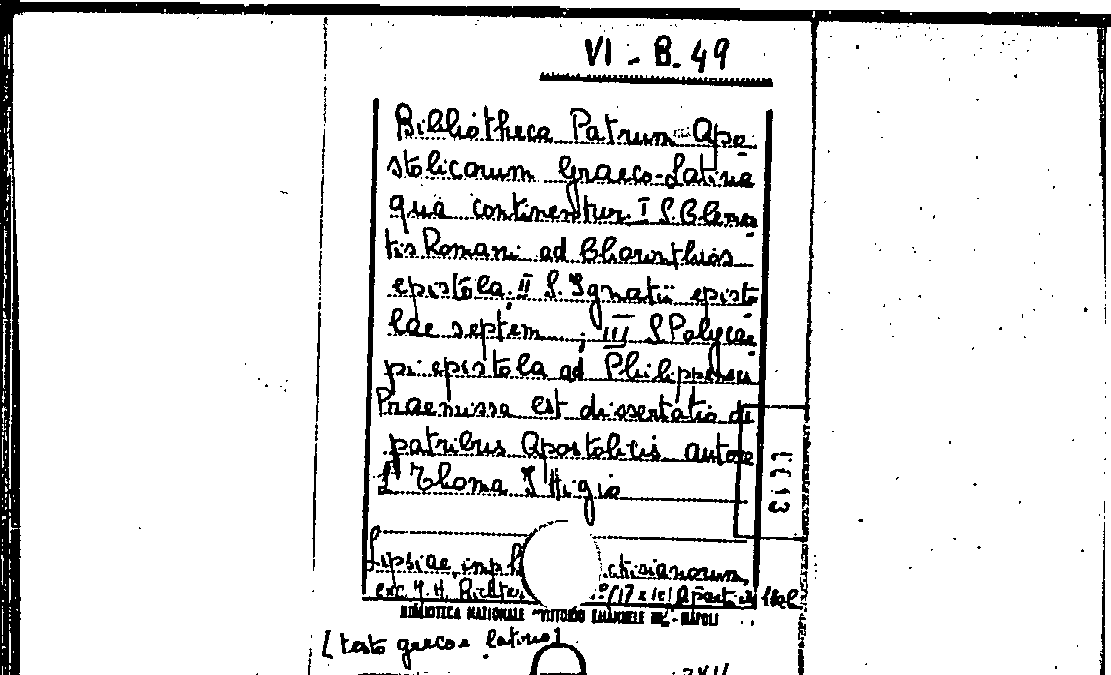 VI - B. 49
Bibliotheca Patrum Apo
stolicorum Graeco-Latina
qua continentur I S. Clemen
tis Romani ad Chorinthios
epistola. II S. Ignatii episto
lae septem ; III S. Polycar
pi epistola ad Philippenses
Praemissa est dissertatio de
patribus Apostolicis autore
L Thoma Ittigio
Lipsiae, imp
exc. J. H. Richter
BIBLIOTECA NAZIONALE "VITTORIO EMANUELE III" - NAPOLI
[testo greco e latino]